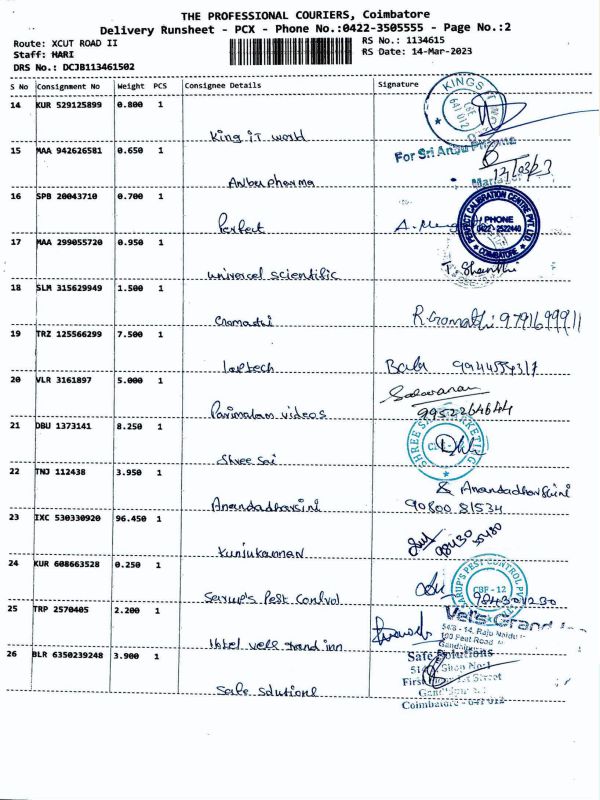 THE PROFESSIONAL COURIERS, Coimbatore
Delivery Runsheet - PCX - Phone No.:0422-3505555 - Page No.:2
Route: XCUT ROAD II
RS No.: 1134615
Staff: HARI
RS Date: 14-Mar-2023
DRS No.: DCJB113461502
S No Consignment No Weight PCS Consignee Details Signature
14 KUR 529125899 0.800 1
King iT world
KINGS IT WO
641 012
15 MAA 942626581 0.650 1
For Sri Anbu Pharma
Anbu pharma
17/03/23
16 SPB 20043710 0.700 1
Perfect
PERFECT CALIBRATION CENTRE PVT LTD.
PHONE
0422-2522440
COIMBATORE
17 MAA 299055720 0.950 1
universal scientific
T. Shanthi
18 SLM 315629949 1.500 1
Gomathi R. Gomathi 9791699911
19 TRZ 125566299 7.500 1
laptech Babu
20 VLR 3161897 5.000 1
Saravanan
Parimalam videos 9952264644
21 DBU 1373141 8.250 1
Shree Sai
SHREE SAI MARKETING
22 TNJ 112438 3.950 1
Anandadharsini
Anandadharshini
90800 81534
23 IXC 530330920 96.450 1
Kunjukannan
98430
24 KUR 608663528 0.250 1
Sarup's Pest Control
SARUP'S PEST CONTROL PVT
CBE - 12
25 TRP 2570405 2.200 1
Hotel vels grand inn
Vel's Grand Inn
54/8 - 14, Raju Naidu
100 Feet Road
26 BLR 6350239248 3.900 1
Safe Solutions
Safe Solutions
Shop No:1
First Street
Coimbatore - 641 012